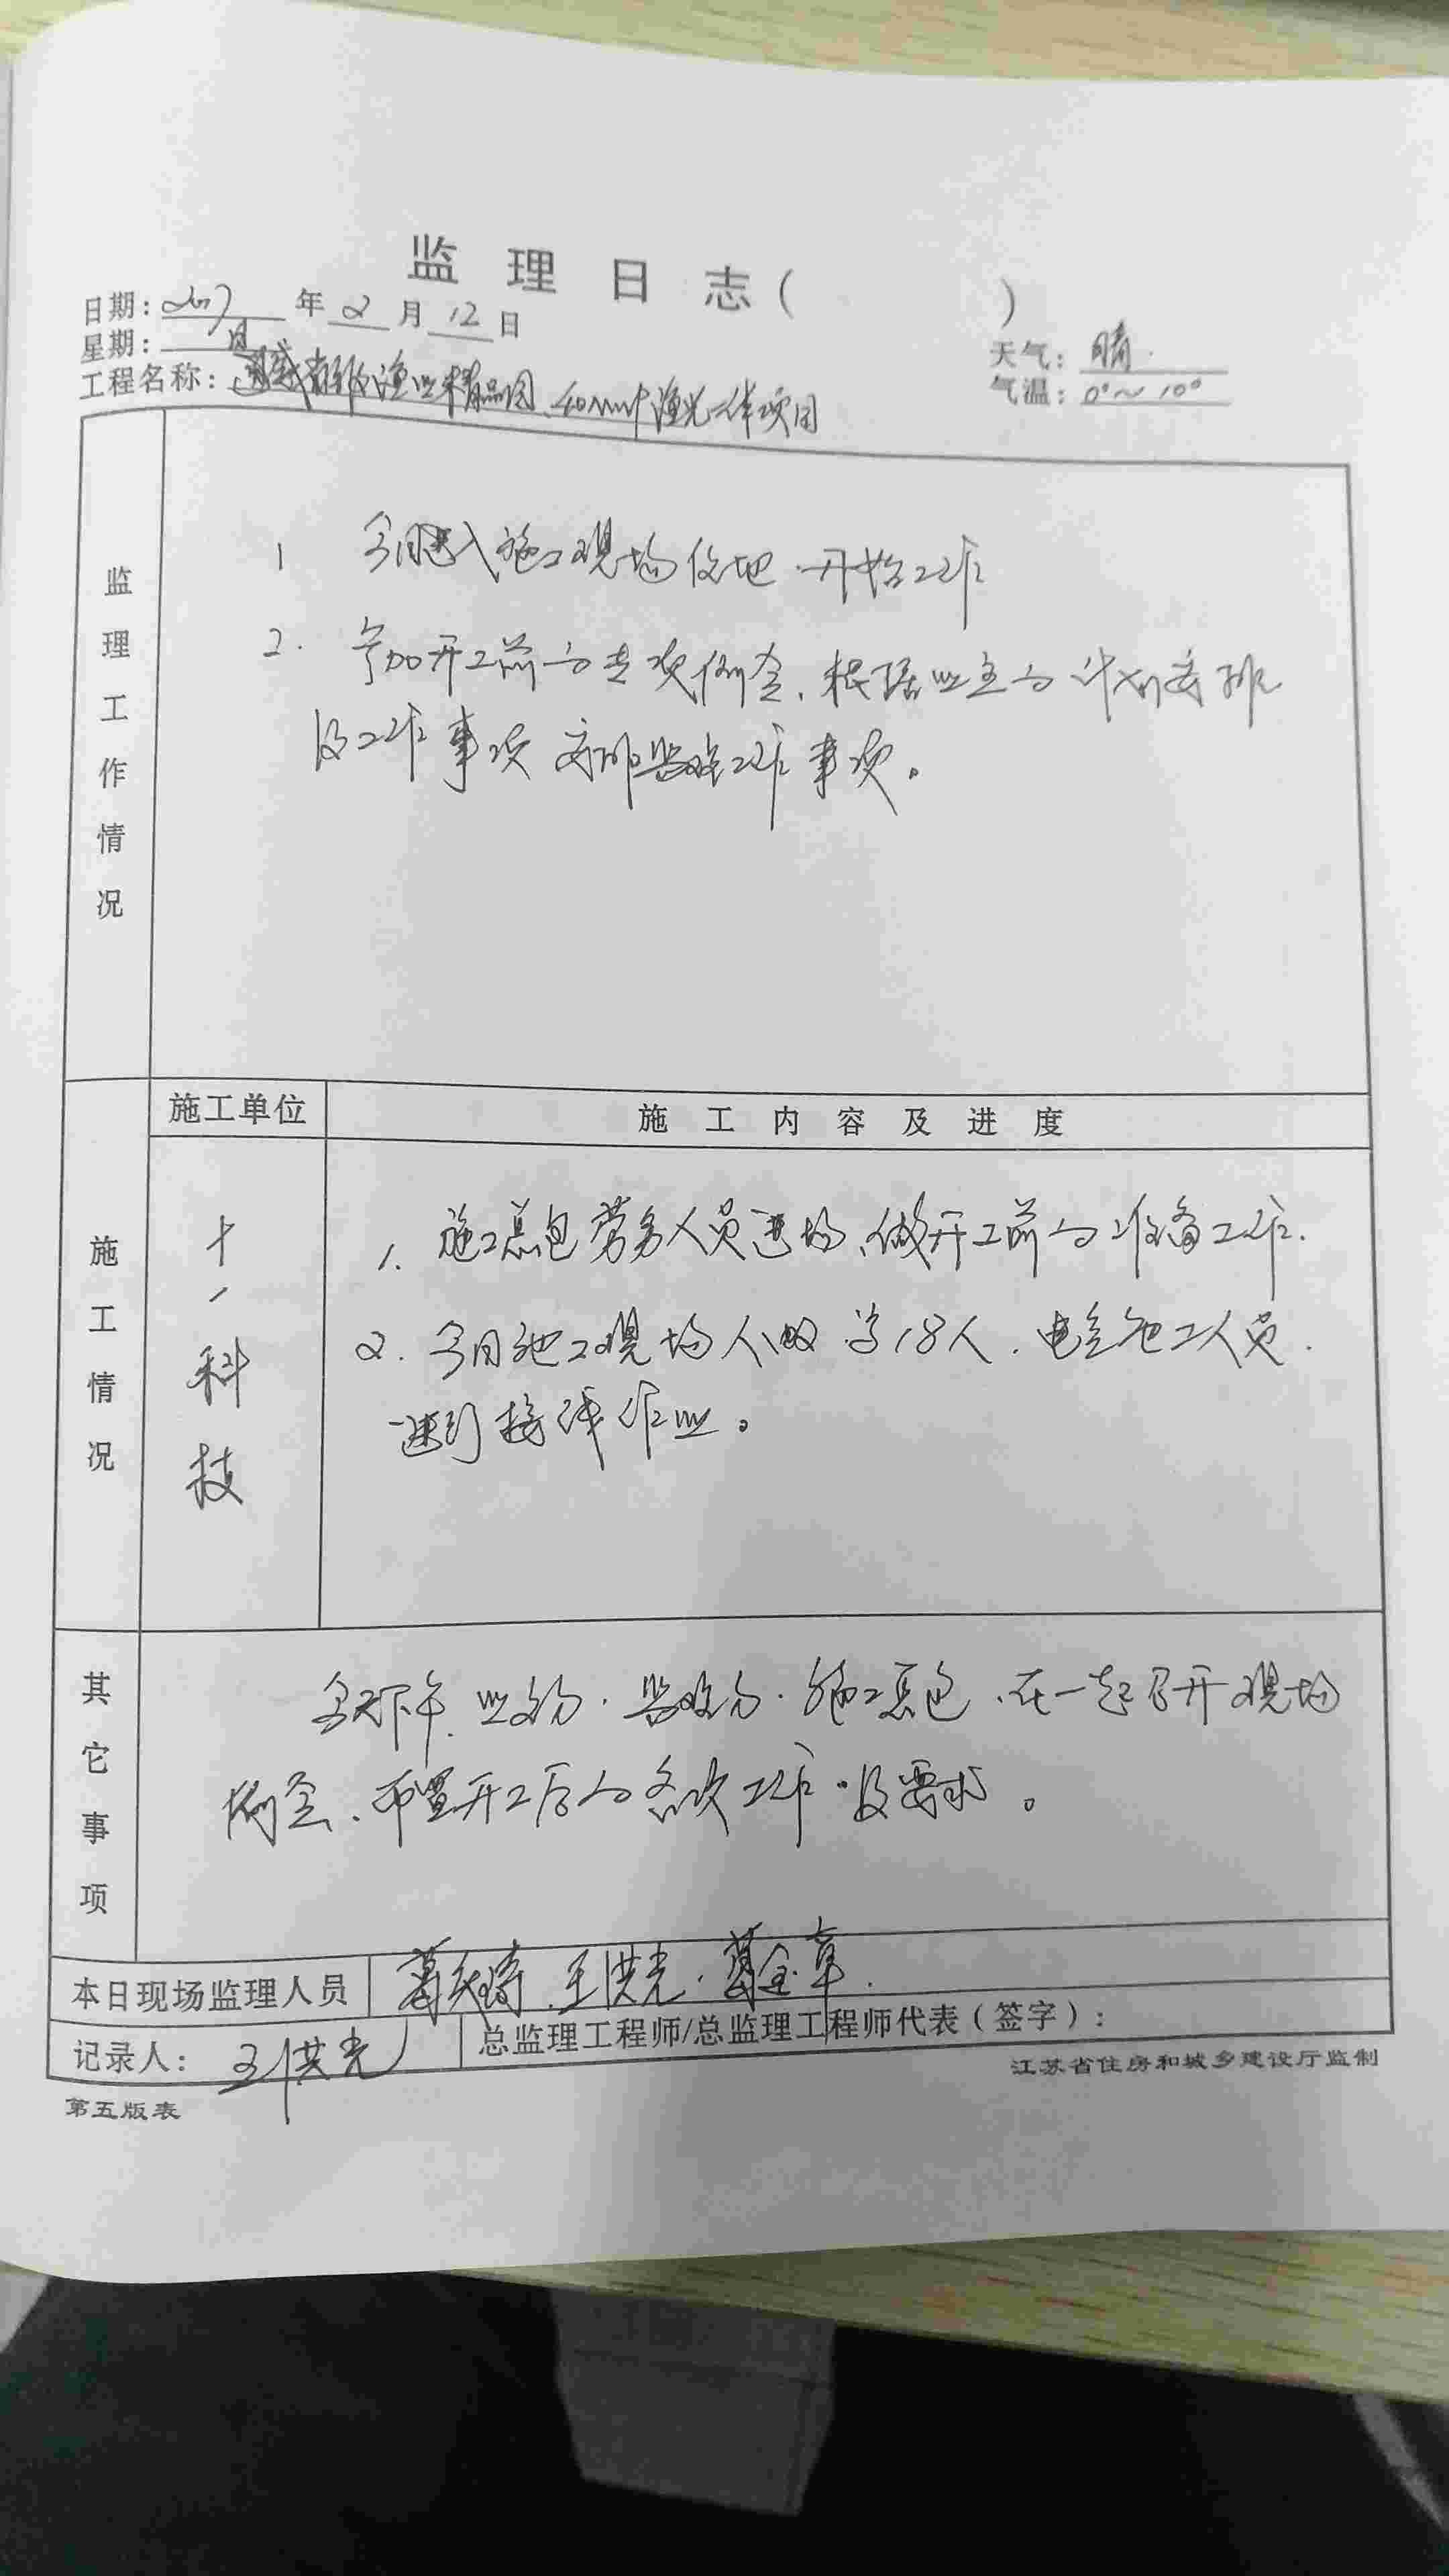 监 理 日 志 ( )
日期: 2017 年 2 月 12 日
星期: 日
天气: 晴.
气温: 0°~10°
工程名称: 渔业精品园、40MW 渔光一体项目
监理工作情况
1 今日进入施工现场住地.开始工作
2. 参加开工前的专项例会、根据业主的计划安排
及工作事项安排监理工作事项。
施工单位
施 工 内 容 及 进 度
施工情况
十一科技
1. 施工总包劳务人员进场、做开工前的准备工作.
2. 今日施工现场人数为18人.电气施工人员.
进行接线作业。
其它事项
今天下午.业主方.监理方.施工总包、在一起召开现场
例会、布置开工后的各项工作及要求。
本日现场监理人员 葛 、王洪光、葛金章.
记录人: 王洪光
总监理工程师/总监理工程师代表(签字):
第五版表
江苏省住房和城乡建设厅监制